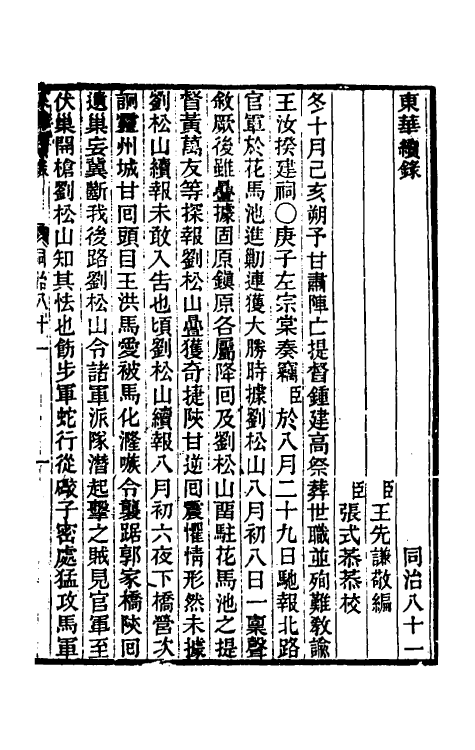 東華續錄　同治八十一
臣王先謙敬編
臣張式恭恭校
冬十月己亥朔予甘肅陣亡提督鍾建高祭葬世職並殉難教諭
王汝揆建祠○庚子左宗棠奏竊臣於八月二十九日馳報北路
官軍於花馬池進勦連獲大勝時據劉松山八月初八日一稟聲
敘厥後雖疊據固原鎭原各屬降回及劉松山留駐花馬池之提
督黃萬友等探報劉松山疊獲奇捷陝甘逆回震懼情形然未據
劉松山續報未敢入告也頃劉松山續報八月初六夜下橋營次
詗靈州城甘回頭目王洪馬愛被馬化漋嗾令襲踞郭家橋陝回
遺巢妄冀斷我後路劉松山令諸軍派隊潛起擊之賊見官軍至
伏巢開槍劉松山知其怯也飭步軍蛇行從礮子密處猛攻馬軍
同治八十一